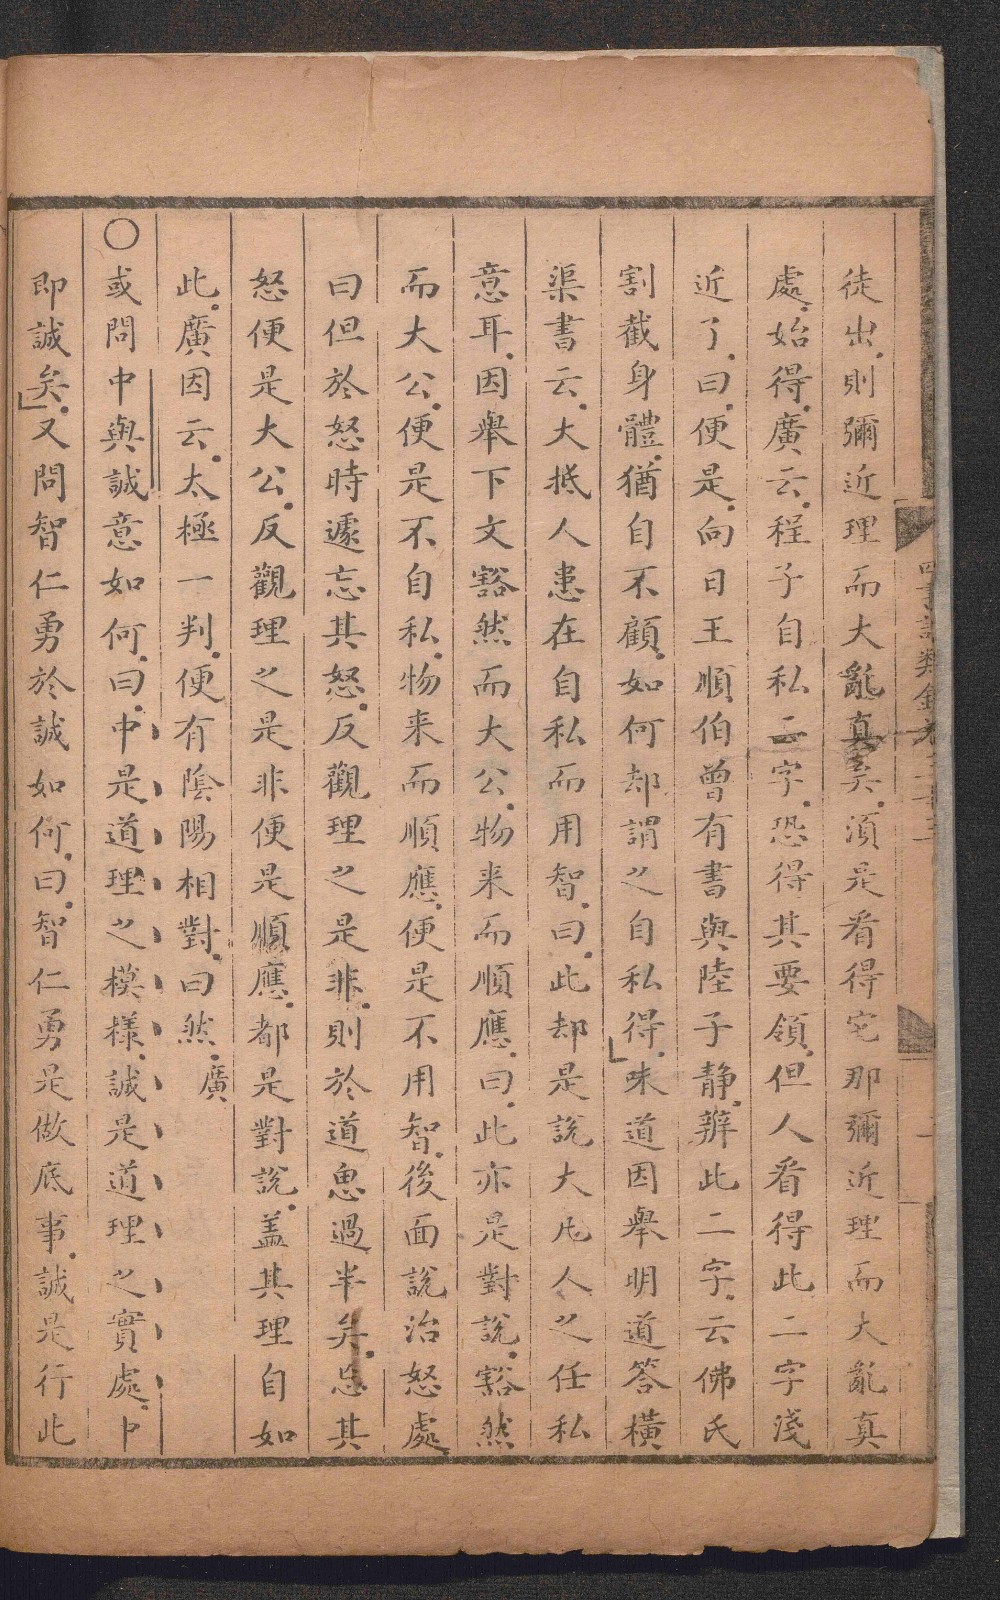 徒出則彌近理而大亂真矣須是看得它那彌近理而大亂真
處始得廣云程子自私二字恐得其要領但人看得此二字淺
近了曰便是向日王順伯曾有書與陸子靜辨此二字云佛氏
割截身體猶自不顧如何却謂之自私得味道因舉明道答橫
渠書云大抵人患在自私而用智曰此却是說大凡人之任私
意耳因舉下文豁然而大公物来而順應曰此亦是對說豁然
而大公便是不自私物来而順應便是不用智後面說治怒處
曰但於怒時遽忘其怒反觀理之是非則於道思過半矣忘其
怒便是大公反觀理之是非便是順應都是對說盖其理自如
此廣因云太極一判便有陰陽相對曰然廣
〇或問中與誠意如何曰中是道理之模樣誠是道理之實處中
即誠矣又問智仁勇於誠如何曰智仁勇是做底事誠是行此